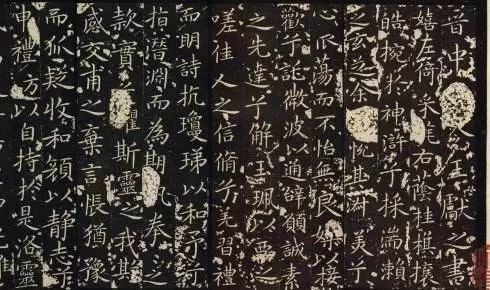 晉中王獻之書
嬉左倚采旄右蔭桂旗攘
皓捥於神滸兮採湍瀨
之玄芝余悅其淑美兮
心振蕩而不怡無良媒以接
歡兮託微波以通辭願誠素
之先達兮解玉珮以要之
嗟佳人之信脩兮羌習禮
而明詩抗瓊珶以和予兮
指潛淵而為期執拳之
款實兮懼斯靈之我欺
感交甫之棄言悵猶豫
而狐疑收和顏以靜志兮
申禮方以自持於是洛靈